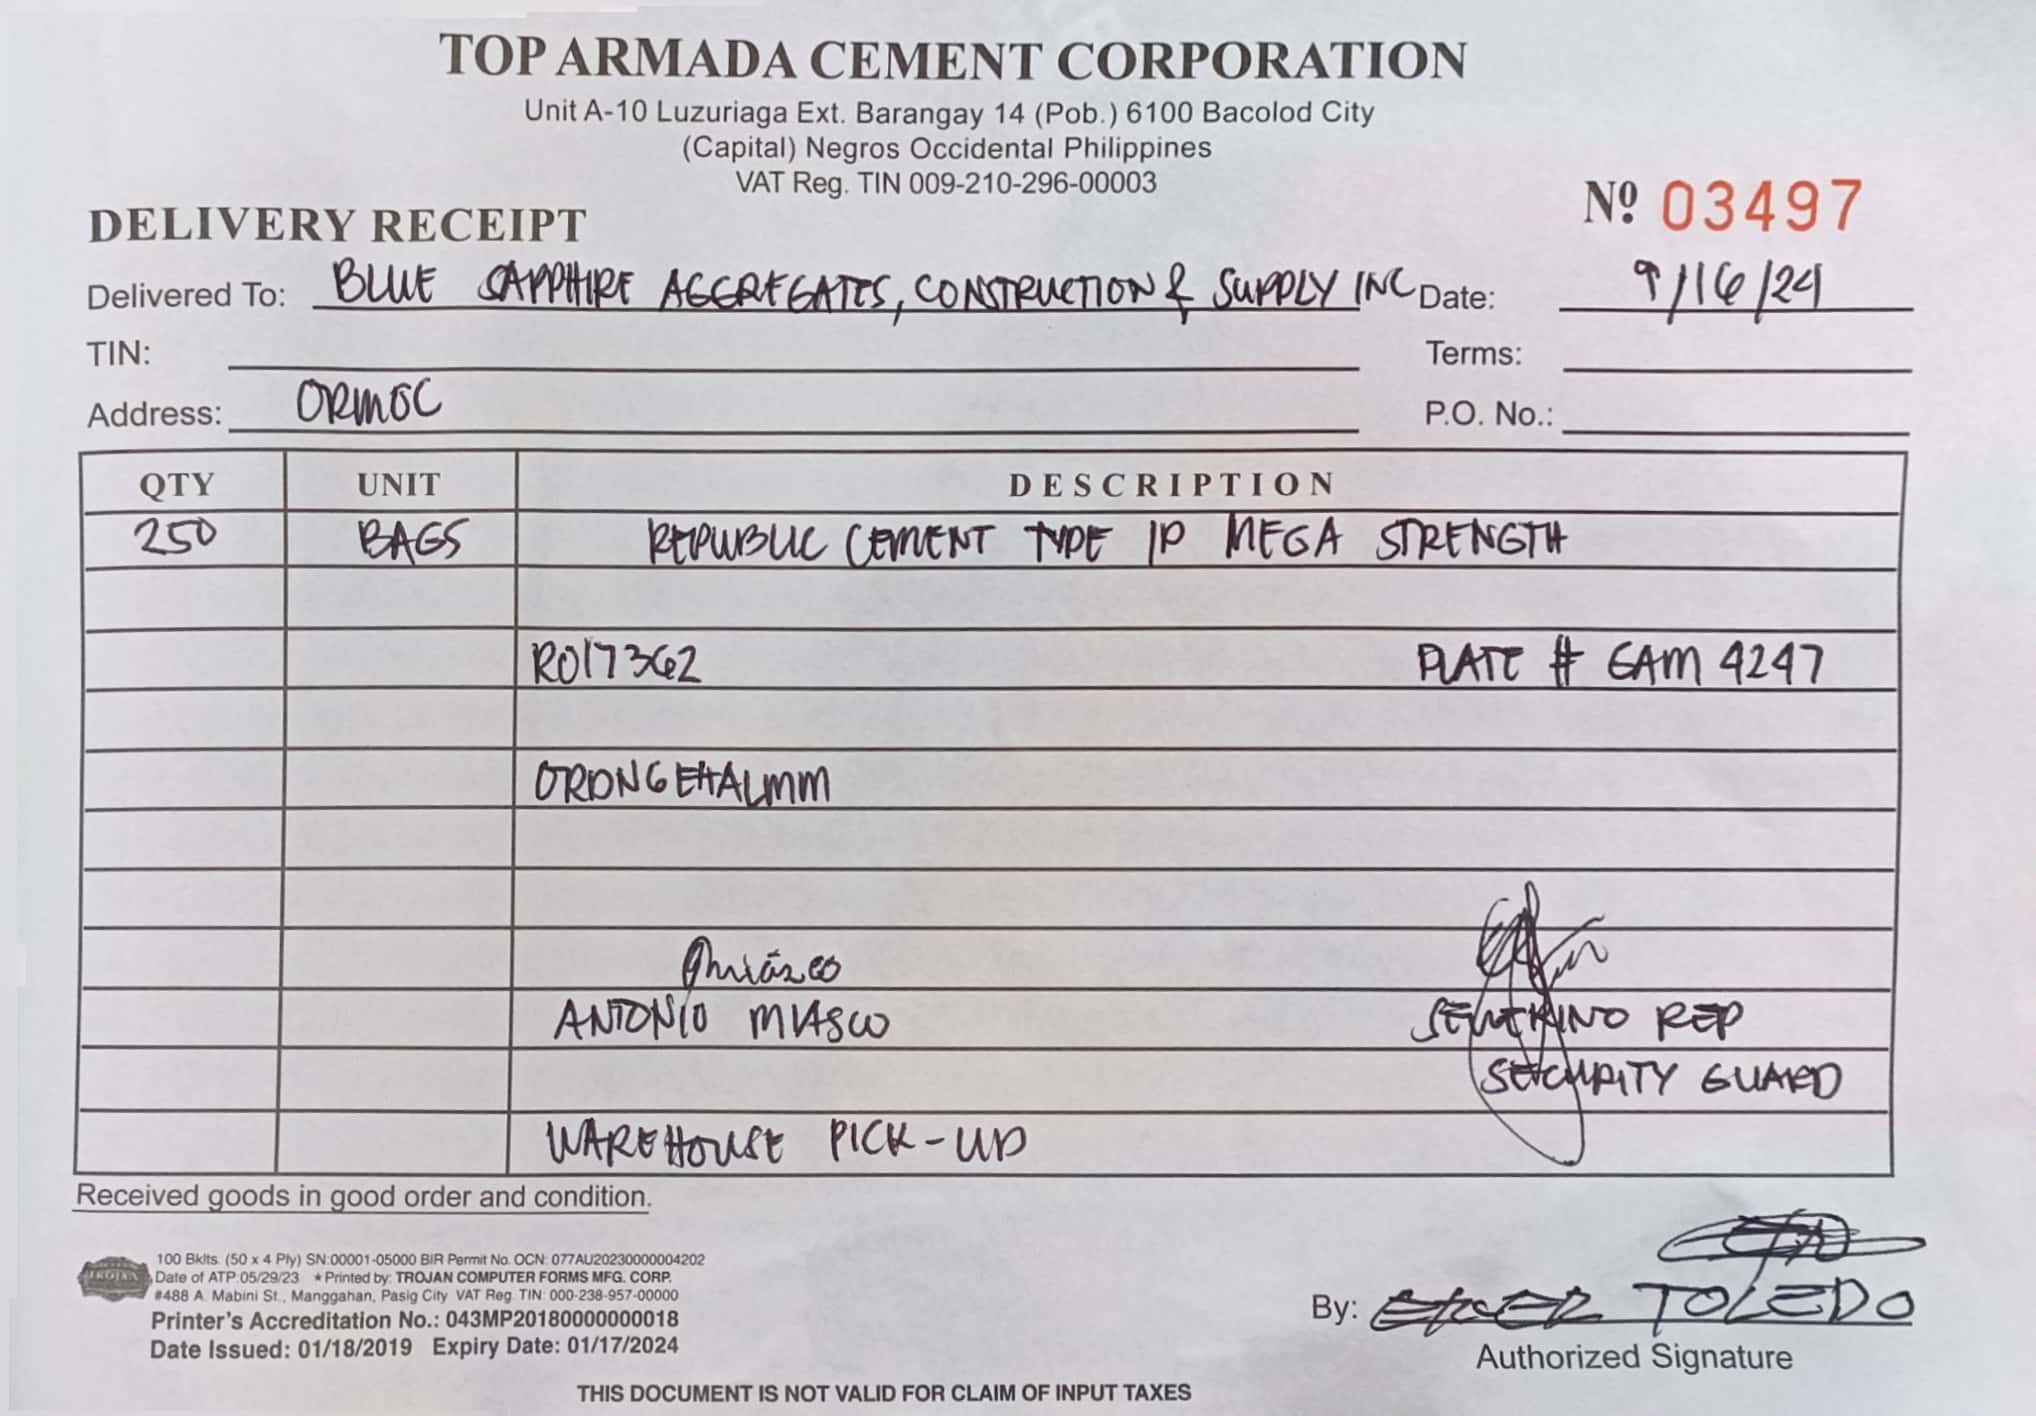 TOP ARMADA CEMENT CORPORATION
Unit A-10 Luzuriaga Ext. Barangay 14 (Pob.) 6100 Bacolod City
(Capital) Negros Occidental Philippines
VAT Reg. TIN 009-210-296-00003
Nº 03497
DELIVERY RECEIPT
Delivered To: BLUE SAPPHIRE AGGREGATES, CONSTRUCTION & SUPPLY INC Date: 9/16/24
TIN: Terms:
Address: ORMOC P.O. No.:
QTY UNIT DESCRIPTION
250 BAGS REPUBLIC CEMENT TYPE 1P MEGA STRENGTH
R017362 PLATE # GAM 4247
ORDNGEHALMM
ANTONIO MIASCO SEVERINO REP
SECURITY GUARD
WAREHOUSE PICK-UP
Received goods in good order and condition.
100 Bklts. (50 x 4 Ply) SN:00001-05000 BIR Permit No. OCN: 077AU20230000004202
Date of ATP:05/29/23 ★Printed by: TROJAN COMPUTER FORMS MFG. CORP.
#488 A. Mabini St., Manggahan, Pasig City VAT Reg. TIN: 000-238-957-00000
Printer's Accreditation No.: 043MP20180000000018
Date Issued: 01/18/2019 Expiry Date: 01/17/2024
TROJAN
By: TOLEDO
Authorized Signature
THIS DOCUMENT IS NOT VALID FOR CLAIM OF INPUT TAXES